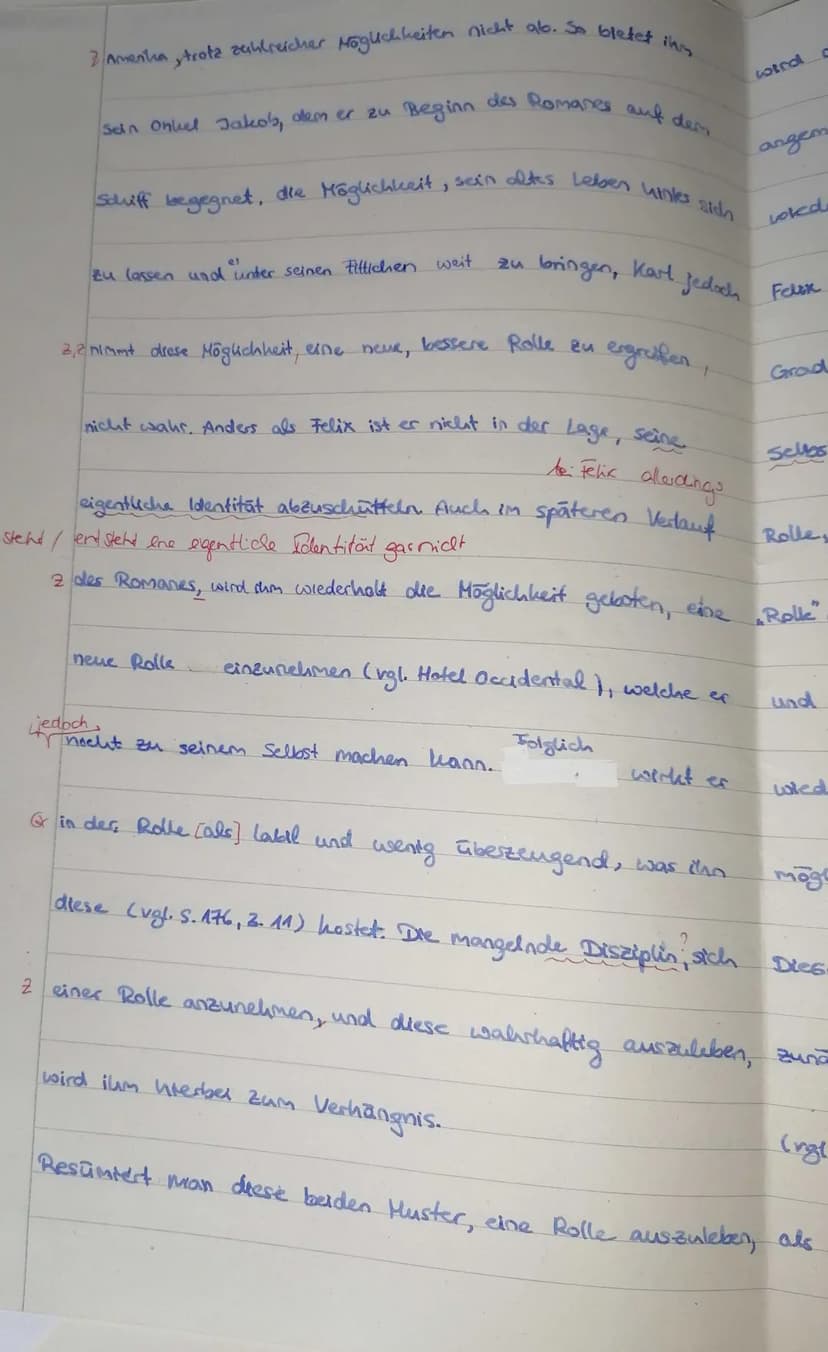 Z Amerika, trotz zahlreicher Möglichkeiten nicht ab. So bietet ihm
sein Onkel Jakob, dem er zu Beginn des Romanes auf dem
Schiff begegnet, die Möglichkeit, sein altes Leben hinter sich
zu lassen und es unter seinen Fittichen weit zu bringen, Karl jedoch
Z, Z nimmt diese Möglichkeit, eine neue, bessere Rolle zu ergreifen,
nicht wahr. Anders als Felix ist er nicht in der Lage, seine
bei Felix allerdings
eigentliche Identität abzuschütteln. Auch im späteren Verlauf
steht / entsteht eine eigentliche Identität gar nicht
Z des Romanes, wird ihm wiederholt die Möglichkeit geboten, eine
neue Rolle einzunehmen (vgl. Hotel Occidental), welche er
jedoch
nicht zu seinem Selbst machen kann. Folglich wirkt er
Gr in der Rolle [als] labil und wenig überzeugend, was ihn
diese (vgl. S. 176, Z. 11) kostet. Die mangelnde Disziplin,? sich
Z einer Rolle anzunehmen, und diese wahrhaftig auszuleben,
wird ihm hierbei zum Verhängnis.
Resümiert man diese beiden Muster, eine Rolle auszuleben, als
wird
angem
wird
Felix
Grad
Selbs
Rolle,
„Rolle"
und
wied
mögl
Dies
zurü
(vgl